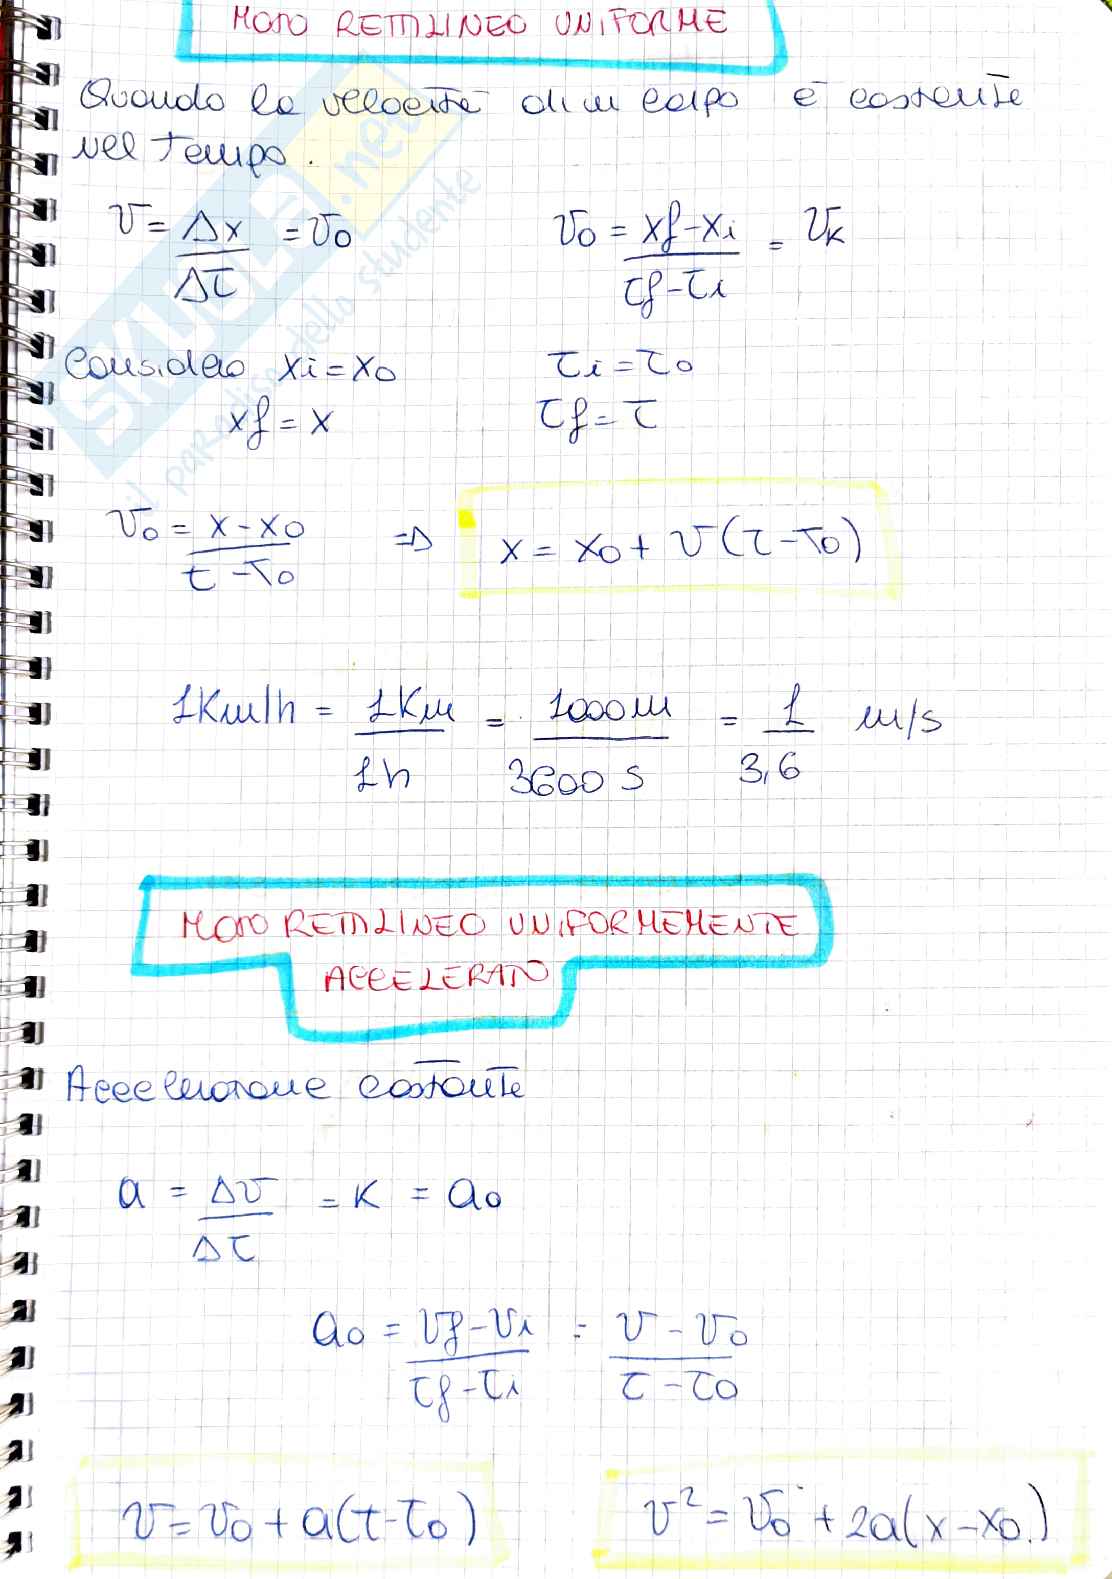 MOTO RETTILINEO UNIFORME
Quando la velocità di un corpo è costante
nel tempo.
v = Δx/Δt = v₀    v₀ = xf-xi/tf-ti = vk
Considero xi = x₀    ti = t₀
xf = x    tf = t
v₀ = x-x₀/t-t₀ => x = x₀ + v(t-t₀)
1Km/h = 1Km/1h = 1000m/3600s = 1/3,6 m/s
MOTO RETTILINEO UNIFORMEMENTE
ACCELERATO
Accelerazione costante
a = Δv/Δt = K = a₀
a₀ = vf-vi/tf-ti = v-v₀/t-t₀
v = v₀ + a(t-t₀)    v² = v₀ + 2a(x-x₀)
SKUOLA.net
il paradiso dello studente